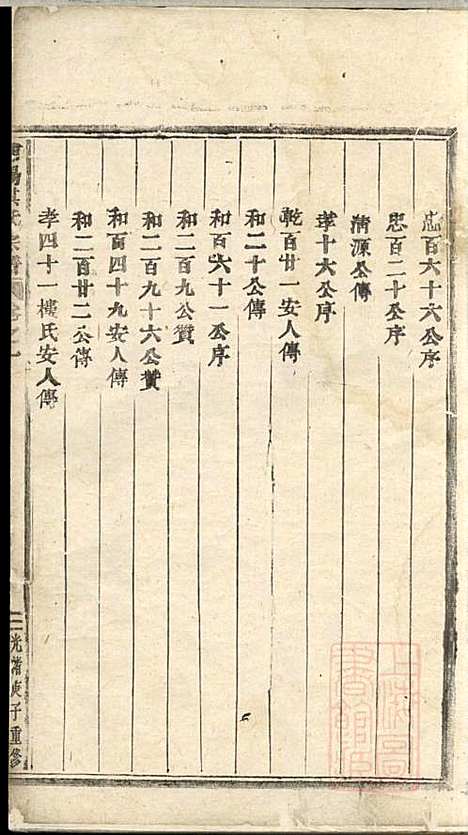 忠百六十六公序
忠百二十公序
清源公傳
孝十六公序
乾百廿一安人傳
和二十公傳
和百六十一公序
和二百九公贊
和二百九十六公贊
和百四十九安人傳
和二百廿二公傳
孝四十一樓氏安人傳
氏宗譜 卷之一
二 光緒庚子重修
上海圖書館藏